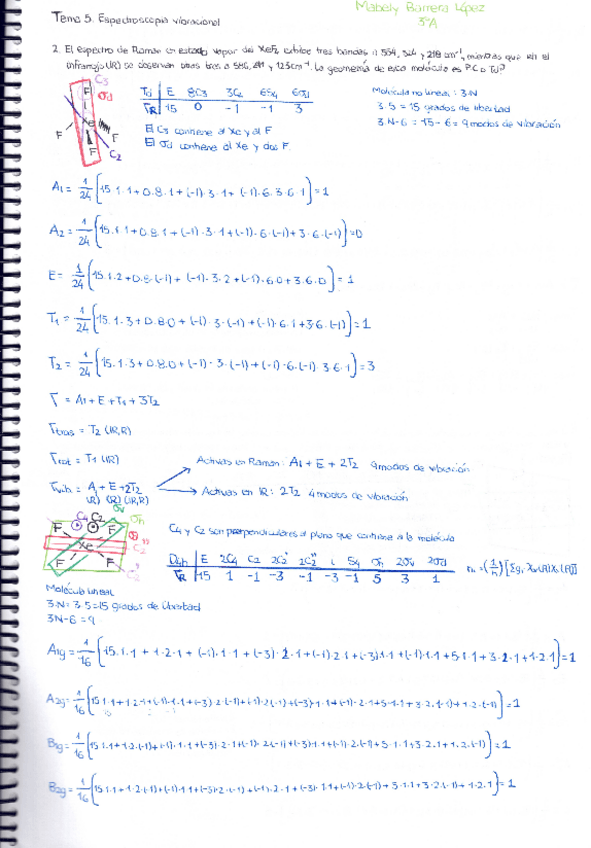 Mabely Barrera López
3ºA
Tema 5. Espectroscopía vibracional
2. El espectro de Raman en estado vapor del XeF4 exhibe tres bandas a 554, 524 y 218 cm⁻¹, mientras que en el
infrarrojo (IR) se observan otras tres a 586, 291 y 123 cm⁻¹. La geometría de esta molécula es P.C o Td?
C3
σd
F
Xe
F
F
F
C2
Td E 8C3 3C2 6S4 6σd
ΓR 15 0 -1 -1 3
El C3 contiene al Xe y al F
El σd contiene al Xe y dos F.
Molécula no lineal: 3·N
3·5 = 15 grados de libertad
3·N-6 = 15-6 = 9 modos de vibración
A1 = 1/24 [15·1·1+0·8·1+(-1)·3·1+(-1)·6·3·6·1] = 1
A2 = 1/24 [15·1·1+0·8·1+(-1)·3·1+(-1)·6·(-1)+3·6·(-1)] = 0
E = 1/24 [15·1·2+0·8·(-1)+(-1)·3·2+(-1)·6·0+3·6·0] = 1
T1 = 1/24 [15·1·3+0·8·0+(-1)·3·(-1)+(-1)·6·1+3·6·(-1)] = 1
T2 = 1/24 [15·1·3+0·8·0+(-1)·3·(-1)+(-1)·6·(-1)·3·6·1] = 3
Γ = A1+E+T1+3T2
Γtras = T2 (IR,R)
Γrot = T1 (IR)
Γvib = A1+E+2T2
(R) (R) (IR,R)
Activas en Raman: A1+E+2T2 9 modos de vibración
Activas en IR: 2T2 4 modos de vibración
C4 C2 σv σh
F F
Xe
F F
C2'
C2''
C4 y C2 son perpendiculares al plano que contiene a la molécula
D4h E 2C4 C2 2C2' 2C2'' i S4 σh 2σv 2σd
ΓR 15 1 -1 -3 -1 -3 -1 5 3 1
Molécula lineal
3·N = 3·5=15 grados de libertad
3N-6 = 9
A1g = 1/16 [15·1·1+1·2·1+(-1)·1·1+(-3)·2·1+(-1)·2·1+(-3)·1·1+(-1)·1·1+5·1·1+3·2·1+1·2·1] = 1
A2g = 1/16 [15·1·1+1·2·1+(-1)·1·1+(-3)·2·(-1)+(-1)·2·(-1)+(-3)·1·1+(-1)·2·1+5·1·1+3·2·(-1)+1·2·(-1)] = 1
B1g = 1/16 [15·1·1+1·2·(-1)+(-1)·1·1+(-3)·2·1+(-1)·2·(-1)+(-3)·1·1+(-1)·2·(-1)+5·1·1+3·2·1+1·2·(-1)] = 1
B2g = 1/16 [15·1·1+1·2·(-1)+(-1)·1·1+(-3)·2·(-1)+(-1)·2·1+(-3)·1·1+(-1)·2·(-1)+5·1·1+3·2·(-1)+1·2·1] = 1